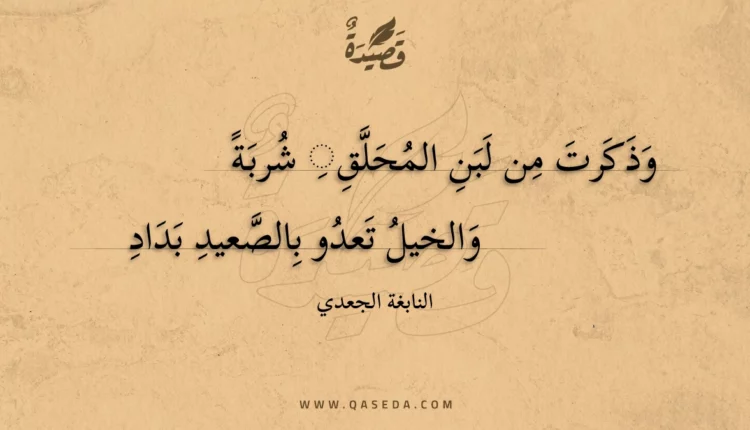 قَصِيدَةٌ
وَذَكَرتَ مِن لَبَنِ المُحَلَّقِ ِ شُربَةً
وَالخيلُ تَعدُو بِالصَّعيدِ بَدَادِ
النابغة الجعدي
WWW.QASEDA.COM